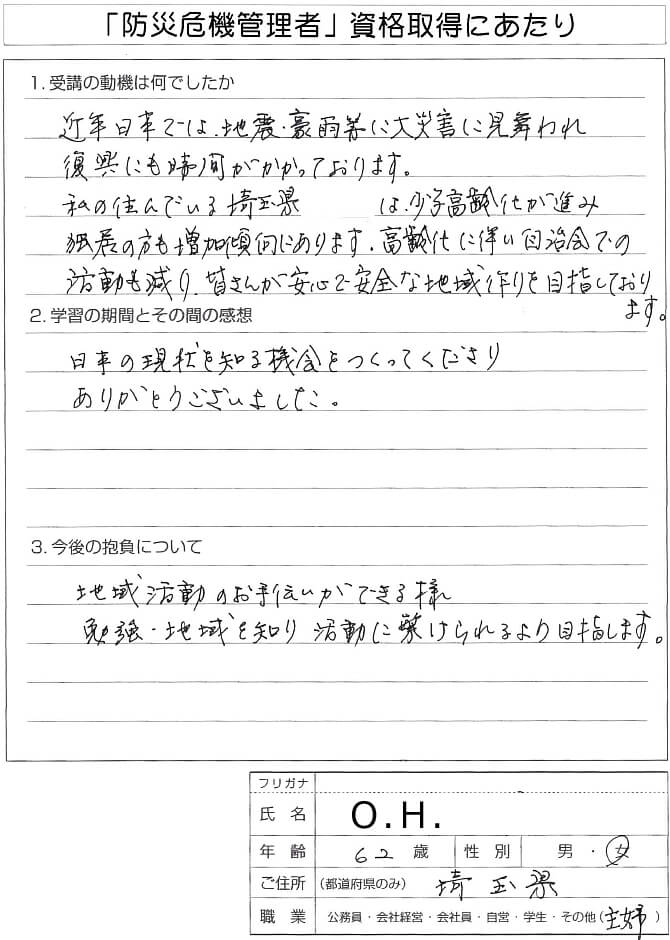 「防災危機管理者」資格取得にあたり
1. 受講の動機は何でしたか
近年日本では、地震・豪雨等に大災害に見舞われ
復興にも時間がかかっております。
私の住んでいる埼玉県 は、少子高齢化が進み
独居の方も増加傾向にあります。高齢化に伴い自治会での
活動も減り、皆さんが安心で安全な地域作りを目指しており
ます。
2. 学習の期間とその間の感想
日本の現状を知る機会をつくってくださり
ありがとうございました。
3. 今後の抱負について
地域活動のお手伝いができる様
勉強・地域を知り活動に繋げられるより目指します。
フリガナ
氏 名 O.H.
年 齢 62 歳 性 別 男 ・ 女
ご住所 (都道府県のみ) 埼玉県
職 業 公務員・会社経営・会社員・自営・学生・その他(主婦)